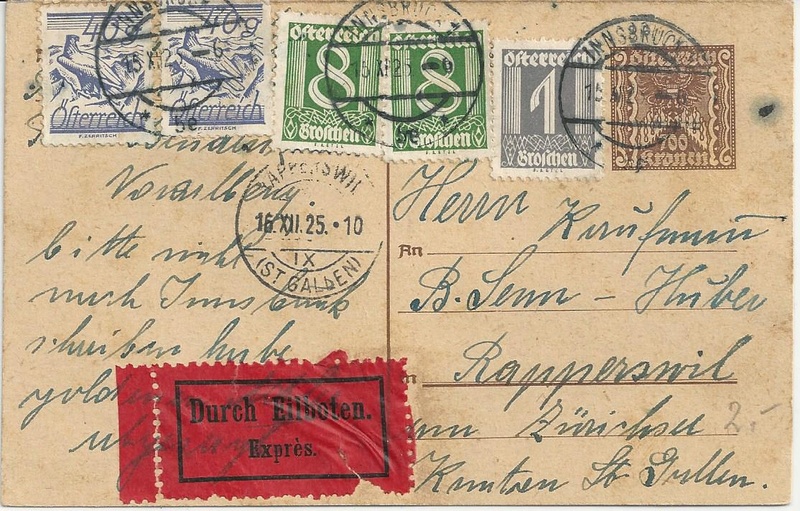 40g 40g
Österreich Österreich
Österreich
8 8
Groschen Groschen
Österreich
1
Groschen
Österreich
700
Kronen
INNSBRUCK 1
15 XII 25
INNSBRUCK
RAPPERSWIL
16.XII.25.-10
IX
(ST GALLEN)
Vorarlberg.
bitte nicht
nach Innsbruck
schreiben habe
An
Herrn Kaufmann
B. Senn - Huber
Rapperswil
am Zürichsee
Kanton St. Gallen.
2.-
Durch Eilboten.
Exprès.